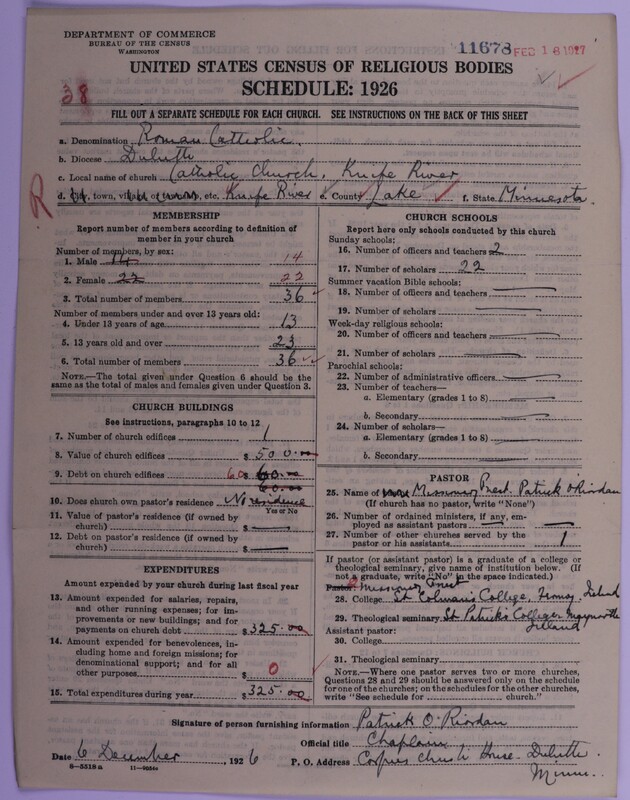 DEPARTMENT OF COMMERCE
BUREAU OF THE CENSUS
WASHINGTON
11678 FEB 18 1927
UNITED STATES CENSUS OF RELIGIOUS BODIES
SCHEDULE: 1926
38
FILL OUT A SEPARATE SCHEDULE FOR EACH CHURCH. SEE INSTRUCTIONS ON THE BACK OF THIS SHEET
a. Denomination Roman Catholic
b. Diocese Duluth
c. Local name of church Catholic Church, Knife River
R
d. town, etc. Knife River e. County Lake f. State Minnesota
MEMBERSHIP
Report number of members according to definition of
member in your church
Number of members, by sex:
1. Male 14 14
2. Female 22 22
3. Total number of members 36
Number of members under and over 13 years old:
4. Under 13 years of age 13
5. 13 years old and over 23
6. Total number of members 36
NOTE.—The total given under Question 6 should be
the same as the total of males and females given under Question 3.
CHURCH BUILDINGS
See instructions, paragraphs 10 to 12
7. Number of church edifices 1
8. Value of church edifices $ 500.00
9. Debt on church edifices 60 $ 60.00
60.00
10. Does church own pastor's residence No residence
Yes or No
11. Value of pastor's residence (if owned by
church) $
12. Debt on pastor's residence (if owned by
church) $
EXPENDITURES
Amount expended by your church during last fiscal year
13. Amount expended for salaries, repairs,
and other running expenses; for im-
provements or new buildings; and for
payments on church debt $ 325.00
14. Amount expended for benevolences, in-
cluding home and foreign missions; for
denominational support; and for all
other purposes $ 0
15. Total expenditures during year $ 325.00
CHURCH SCHOOLS
Report here only schools conducted by this church
Sunday schools:
16. Number of officers and teachers 2
17. Number of scholars 22
Summer vacation Bible schools:
18. Number of officers and teachers
19. Number of scholars
Week-day religious schools:
20. Number of officers and teachers
21. Number of scholars
Parochial schools:
22. Number of administrative officers
23. Number of teachers—
a. Elementary (grades 1 to 8)
b. Secondary
24. Number of scholars—
a. Elementary (grades 1 to 8)
b. Secondary
PASTOR
25. Name of Missionary Priest Patrick O'Riordan
(If church has no pastor, write "None")
26. Number of ordained ministers, if any, em-
ployed as assistant pastors
27. Number of other churches served by the
pastor or his assistants 1
If pastor (or assistant pastor) is a graduate of a college or
theological seminary, give name of institution below. (If
not a graduate, write "No" in the space indicated.)
Pastor: Missionary Priest
28. College St Colman's College, Fermoy, Ireland
29. Theological seminary St Patricks College Maynooth
Ireland
Assistant pastor:
30. College
31. Theological seminary
NOTE.—Where one pastor serves two or more churches,
Questions 28 and 29 should be answered only on the schedule
for one of the churches; on the schedules for the other churches,
write "See schedule for church."
Signature of person furnishing information Patrick O'Riordan
Official title Chaplain
Date 6 December, 1926 P. O. Address Corpus Christi House. Duluth
Minn.
8—3318a 11—9034a